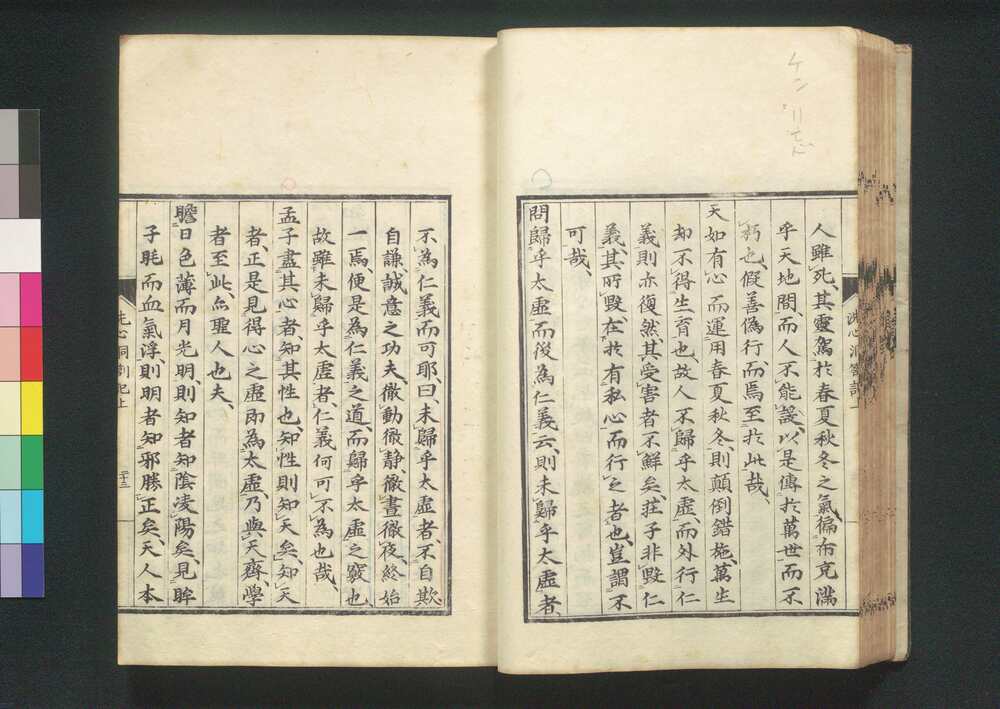 人雖死、其靈駕於春夏秋冬之氣、徧布充滿
乎天地間、而人不能、以是傳於萬世而不
朽也、假善偽行、而焉至於此哉、
天如有心而運用春夏秋冬、則顛倒錯施、萬生
却不得生育也、故人不歸乎太虛、而外行仁
義、則亦復然、其受害者不鮮矣、莊子非毀仁
義、其所毀在於有私心而行之者也、豈謂不
可哉、
問歸乎太虛而後為仁義云、則未歸乎太虛者、
不為仁義而可耶、曰、未歸乎太虛者、不自欺
自謙誠意之功夫、徹動徹靜、徹晝徹夜、終始
一焉、便是為仁義之道、而歸乎太虛之竅也、
故雖未歸乎太虛者、仁義何可不為也哉、
孟子盡其心者、知其性也、知性則知天矣、知天
者、正是見得心之虛即為太虛、乃與天齊、學
者至此、亦聖人也夫、
瞻日色薄而月光明、則知者知陰凌陽矣、見眸
子眊而血氣浮、則明者知邪勝正矣、天人本
洗心洞劄記上